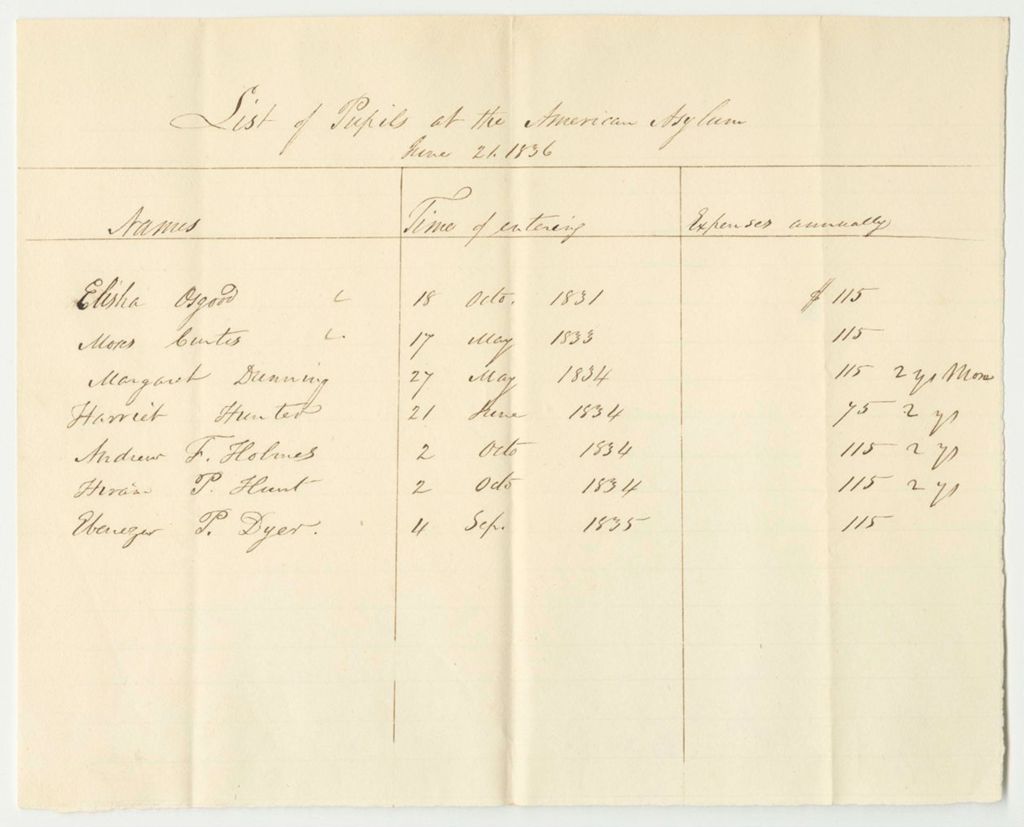 List of Pupils at the American Asylum
June 21. 1836
Names Time of entering Expenses annually
Elisha Osgood 18 Octo. 1831 $ 115
Moses Curtis 17 May 1833 115
Margaret Dunning 27 May 1834 115 2 ys More
Harriet Hunter 21 June 1834 75 2 ys
Andrew F. Holmes 2 Octo 1834 115 2 ys
Hiram P. Hunt 2 Octo 1834 115 2 ys
Ebenezer P. Dyer. 4 Sep. 1835 115